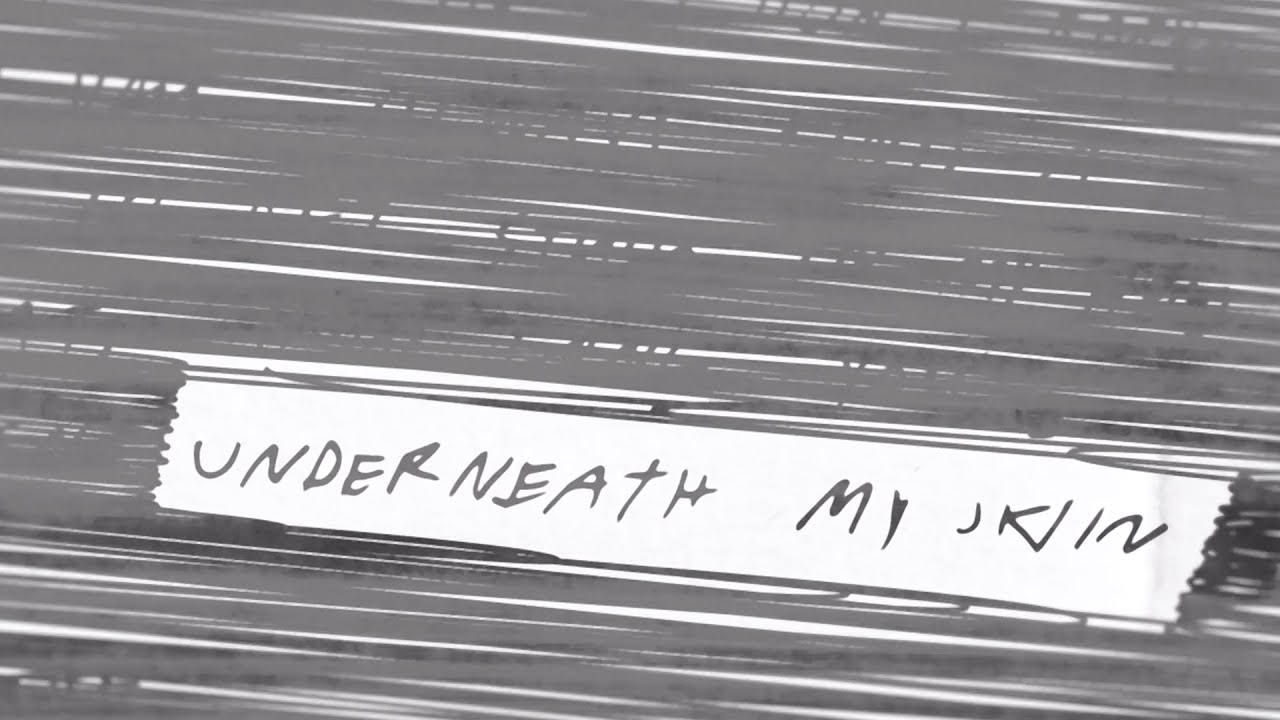 UNDERNEATH MY SKIN